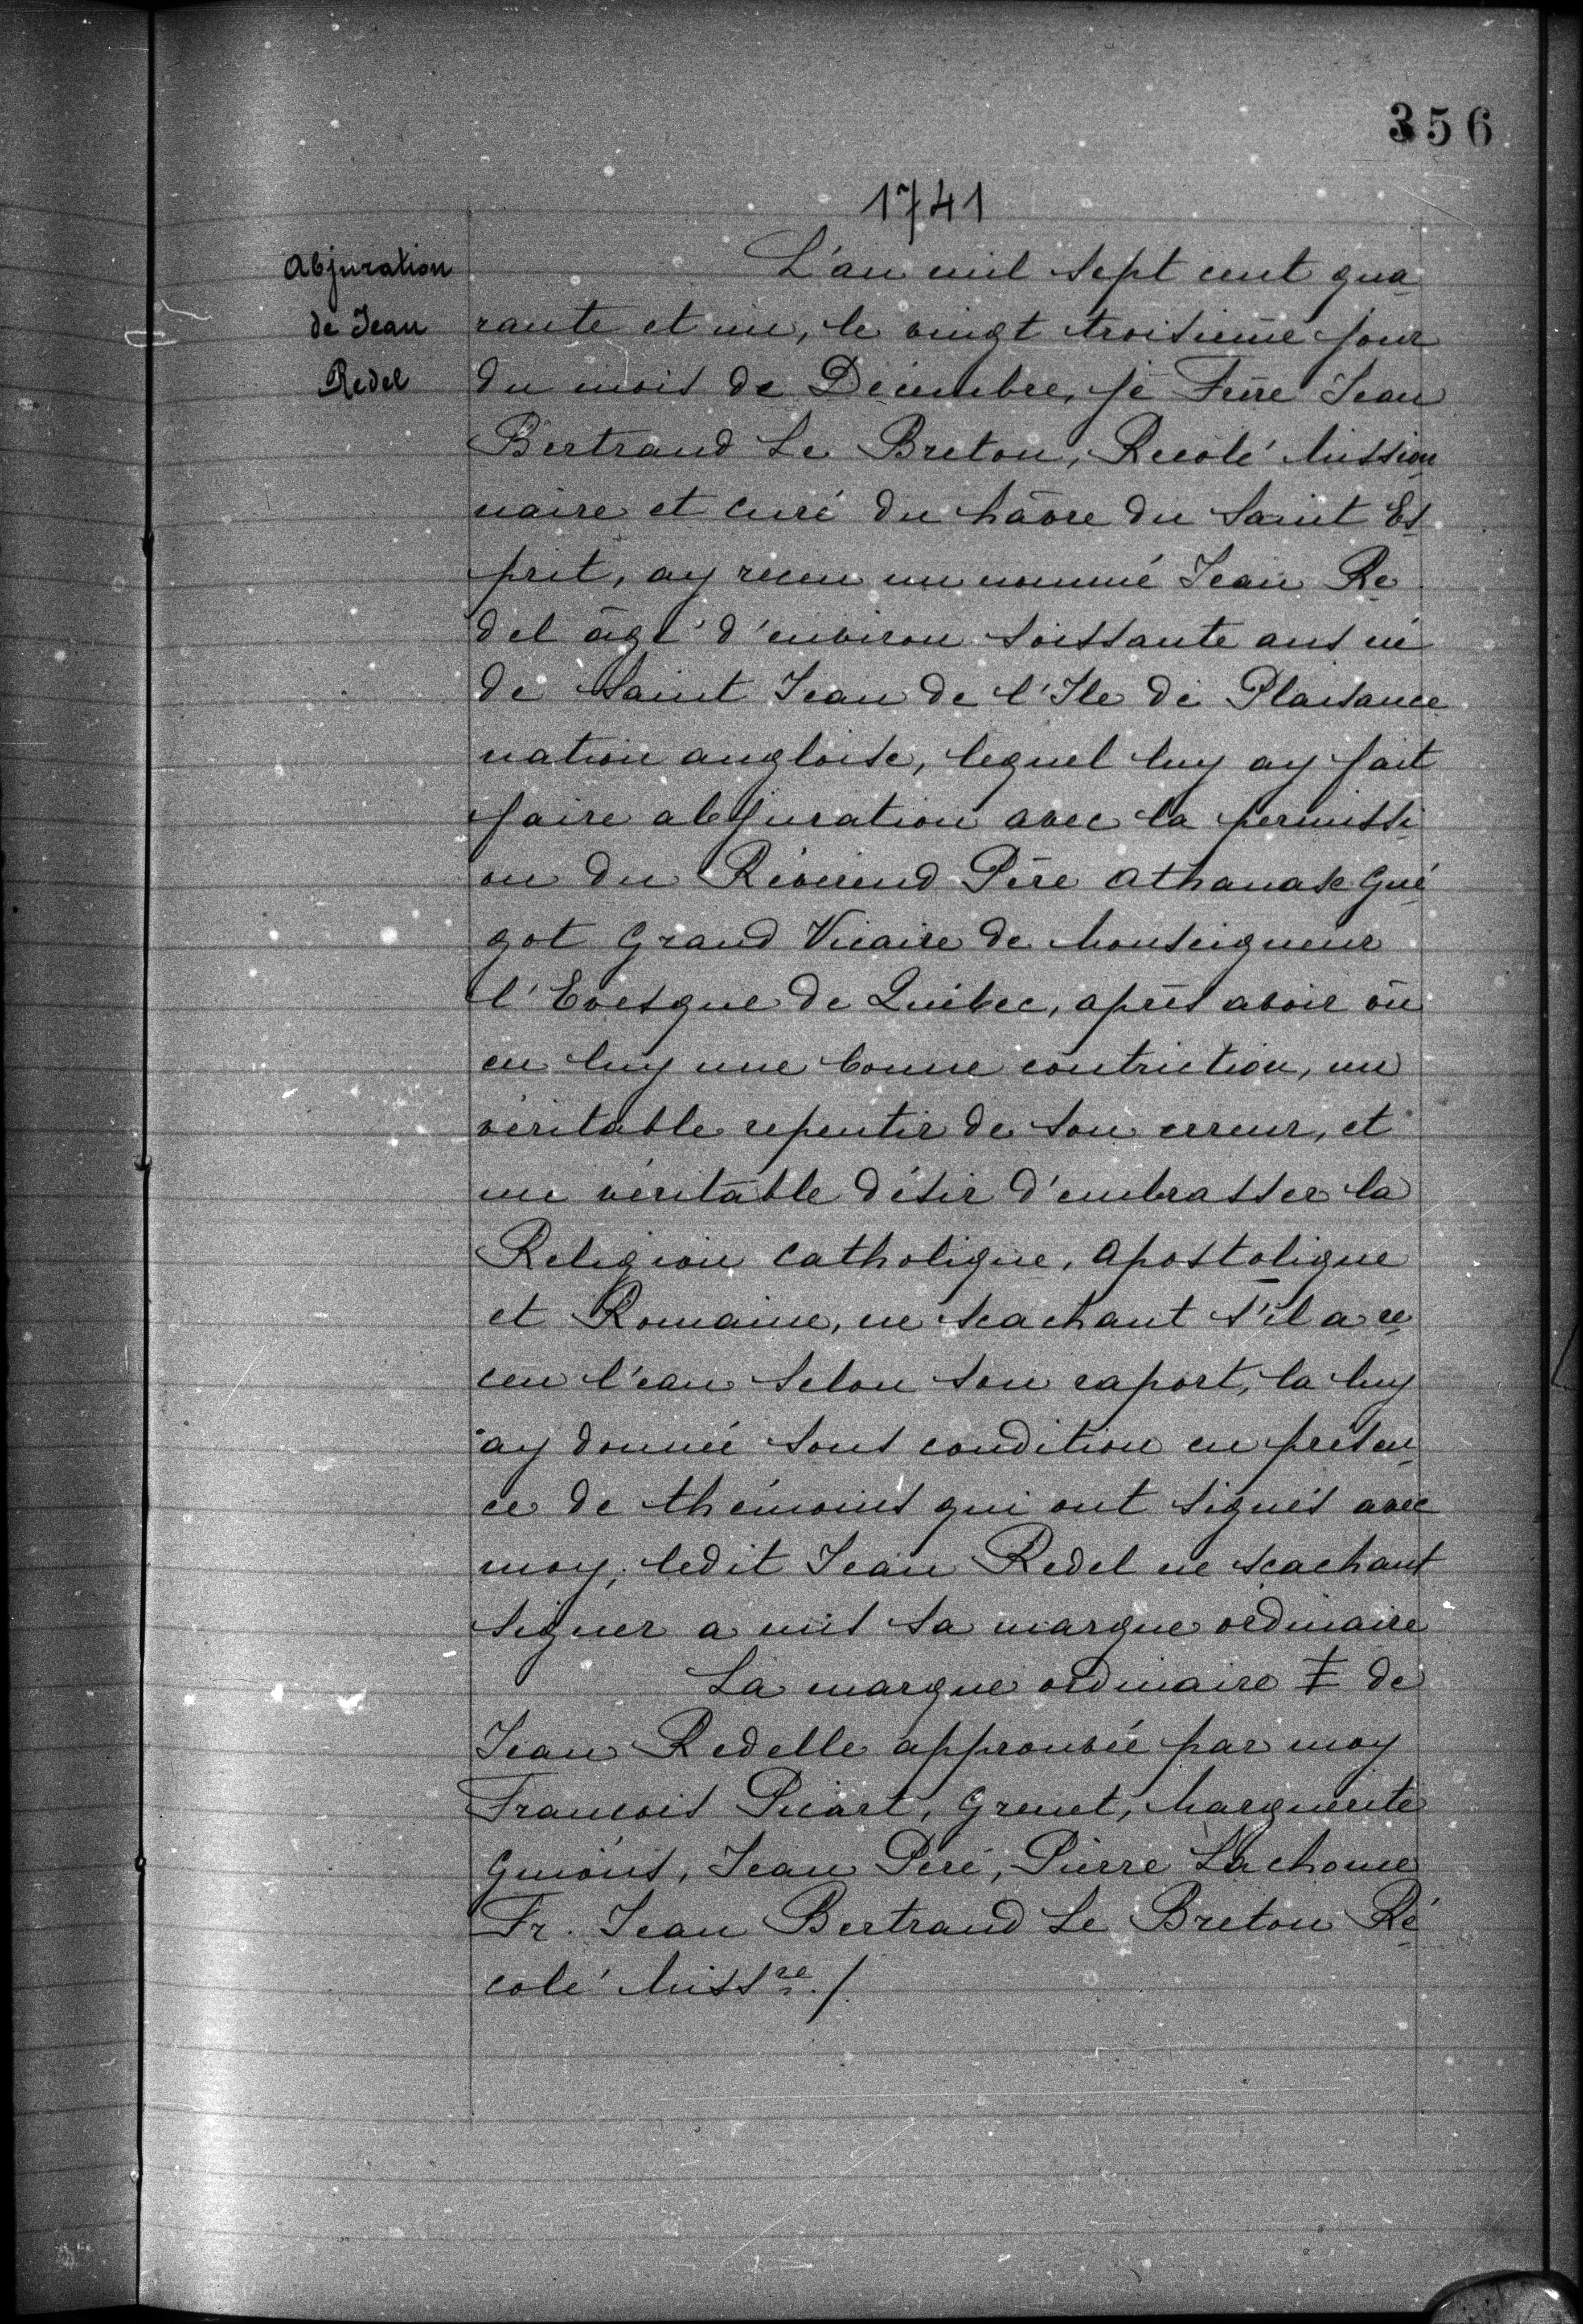 356
1741
Abjuration
de Jean
Redel
L'an mil sept cent qua
rante et un, le vingt troisième jour
du mois de Décembre, je Frère Jean
Bertrand Le Breton, Recolé Mission
naire et Curé du hâvre du Saint Es
prit, ay receu un nommé Jean Re
del âgé d'environ soissante ans né
de Saint Jean de l'Ile de Plaisance
nation angloise, lequel luy ay fait
faire abjuration avec la permissi
on du Révérend Père Athanase Gué
got Grand Vicaire de Monseigneur
l'Evesque de Québec, après avoir vû
en luy une bonne contriction, un
véritable repentir de son erreur, et
un véritable désir d'embrasser la
Religion Catholique, Apostolique
et Romaine, ne scachant s'il a re
ceu l'eau selon son raport, la luy
ay donnée sous condition en présen
ce de thémoins qui ont signés avec
moy, ledit Jean Redel ne scachant
signer a mis sa marque ordinaire
La marque ordinaire ‡ de
Jean Redelle approuvée par moy
Francois Picart, Grenet, Marguerite
Guions, Jean Peré, Pierre Lachoue
Fr. Jean Bertrand Le Breton Ré
colé Missre./.